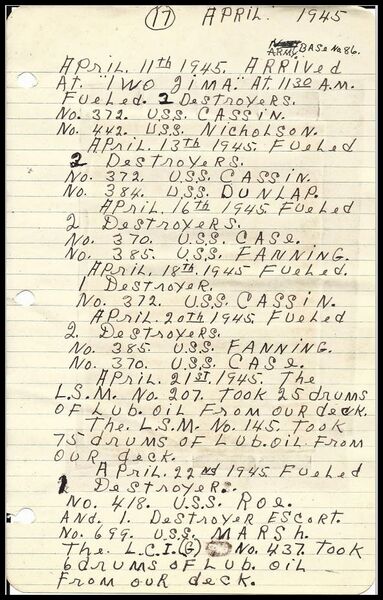 (17) APRIL. 1945
ARMY BASE No 86.
APRIL. 11th 1945. ARRIVED
AT. "IWO JIMA." AT. 1130 A.M.
FUELED. 2 DESTROYERS.
No. 372. U.S.S. CASSIN.
No. 442. U.S.S. NICHOLSON.
APRIL. 13th 1945. FUELED
2 DESTROYERS.
No. 372. U.S.S. CASSIN.
No. 384. U.S.S. DUNLAP.
APRIL. 16th 1945. FUELED
2 DESTROYERS.
No. 370. U.S.S. CASE.
No. 385. U.S.S. FANNING.
APRIL. 18th. 1945. FUELED.
1 DESTROYER.
No. 372. U.S.S. CASSIN.
APRIL. 20th 1945. FUELED
2 DESTROYERS.
No. 385. U.S.S. FANNING.
No. 370. U.S.S. CASE.
APRIL. 21ST. 1945. The
L.S.M. No. 207. TOOK 25 drums
OF LUB. OIL FROM OUR deck.
The. L.S.M. No. 145. TOOK
75 drums OF LUB. OIL FROM
OUR deck.
APRIL. 22nd 1945 FUELED
1 DESTROYER.
No. 418. U.S.S. ROE.
AND. 1. DESTROYER ESCORT.
No. 699. U.S.S. MARSH.
The L.C.I.(G) No. 437. TOOK
6 drums OF LUB. OIL
FROM OUR deck.